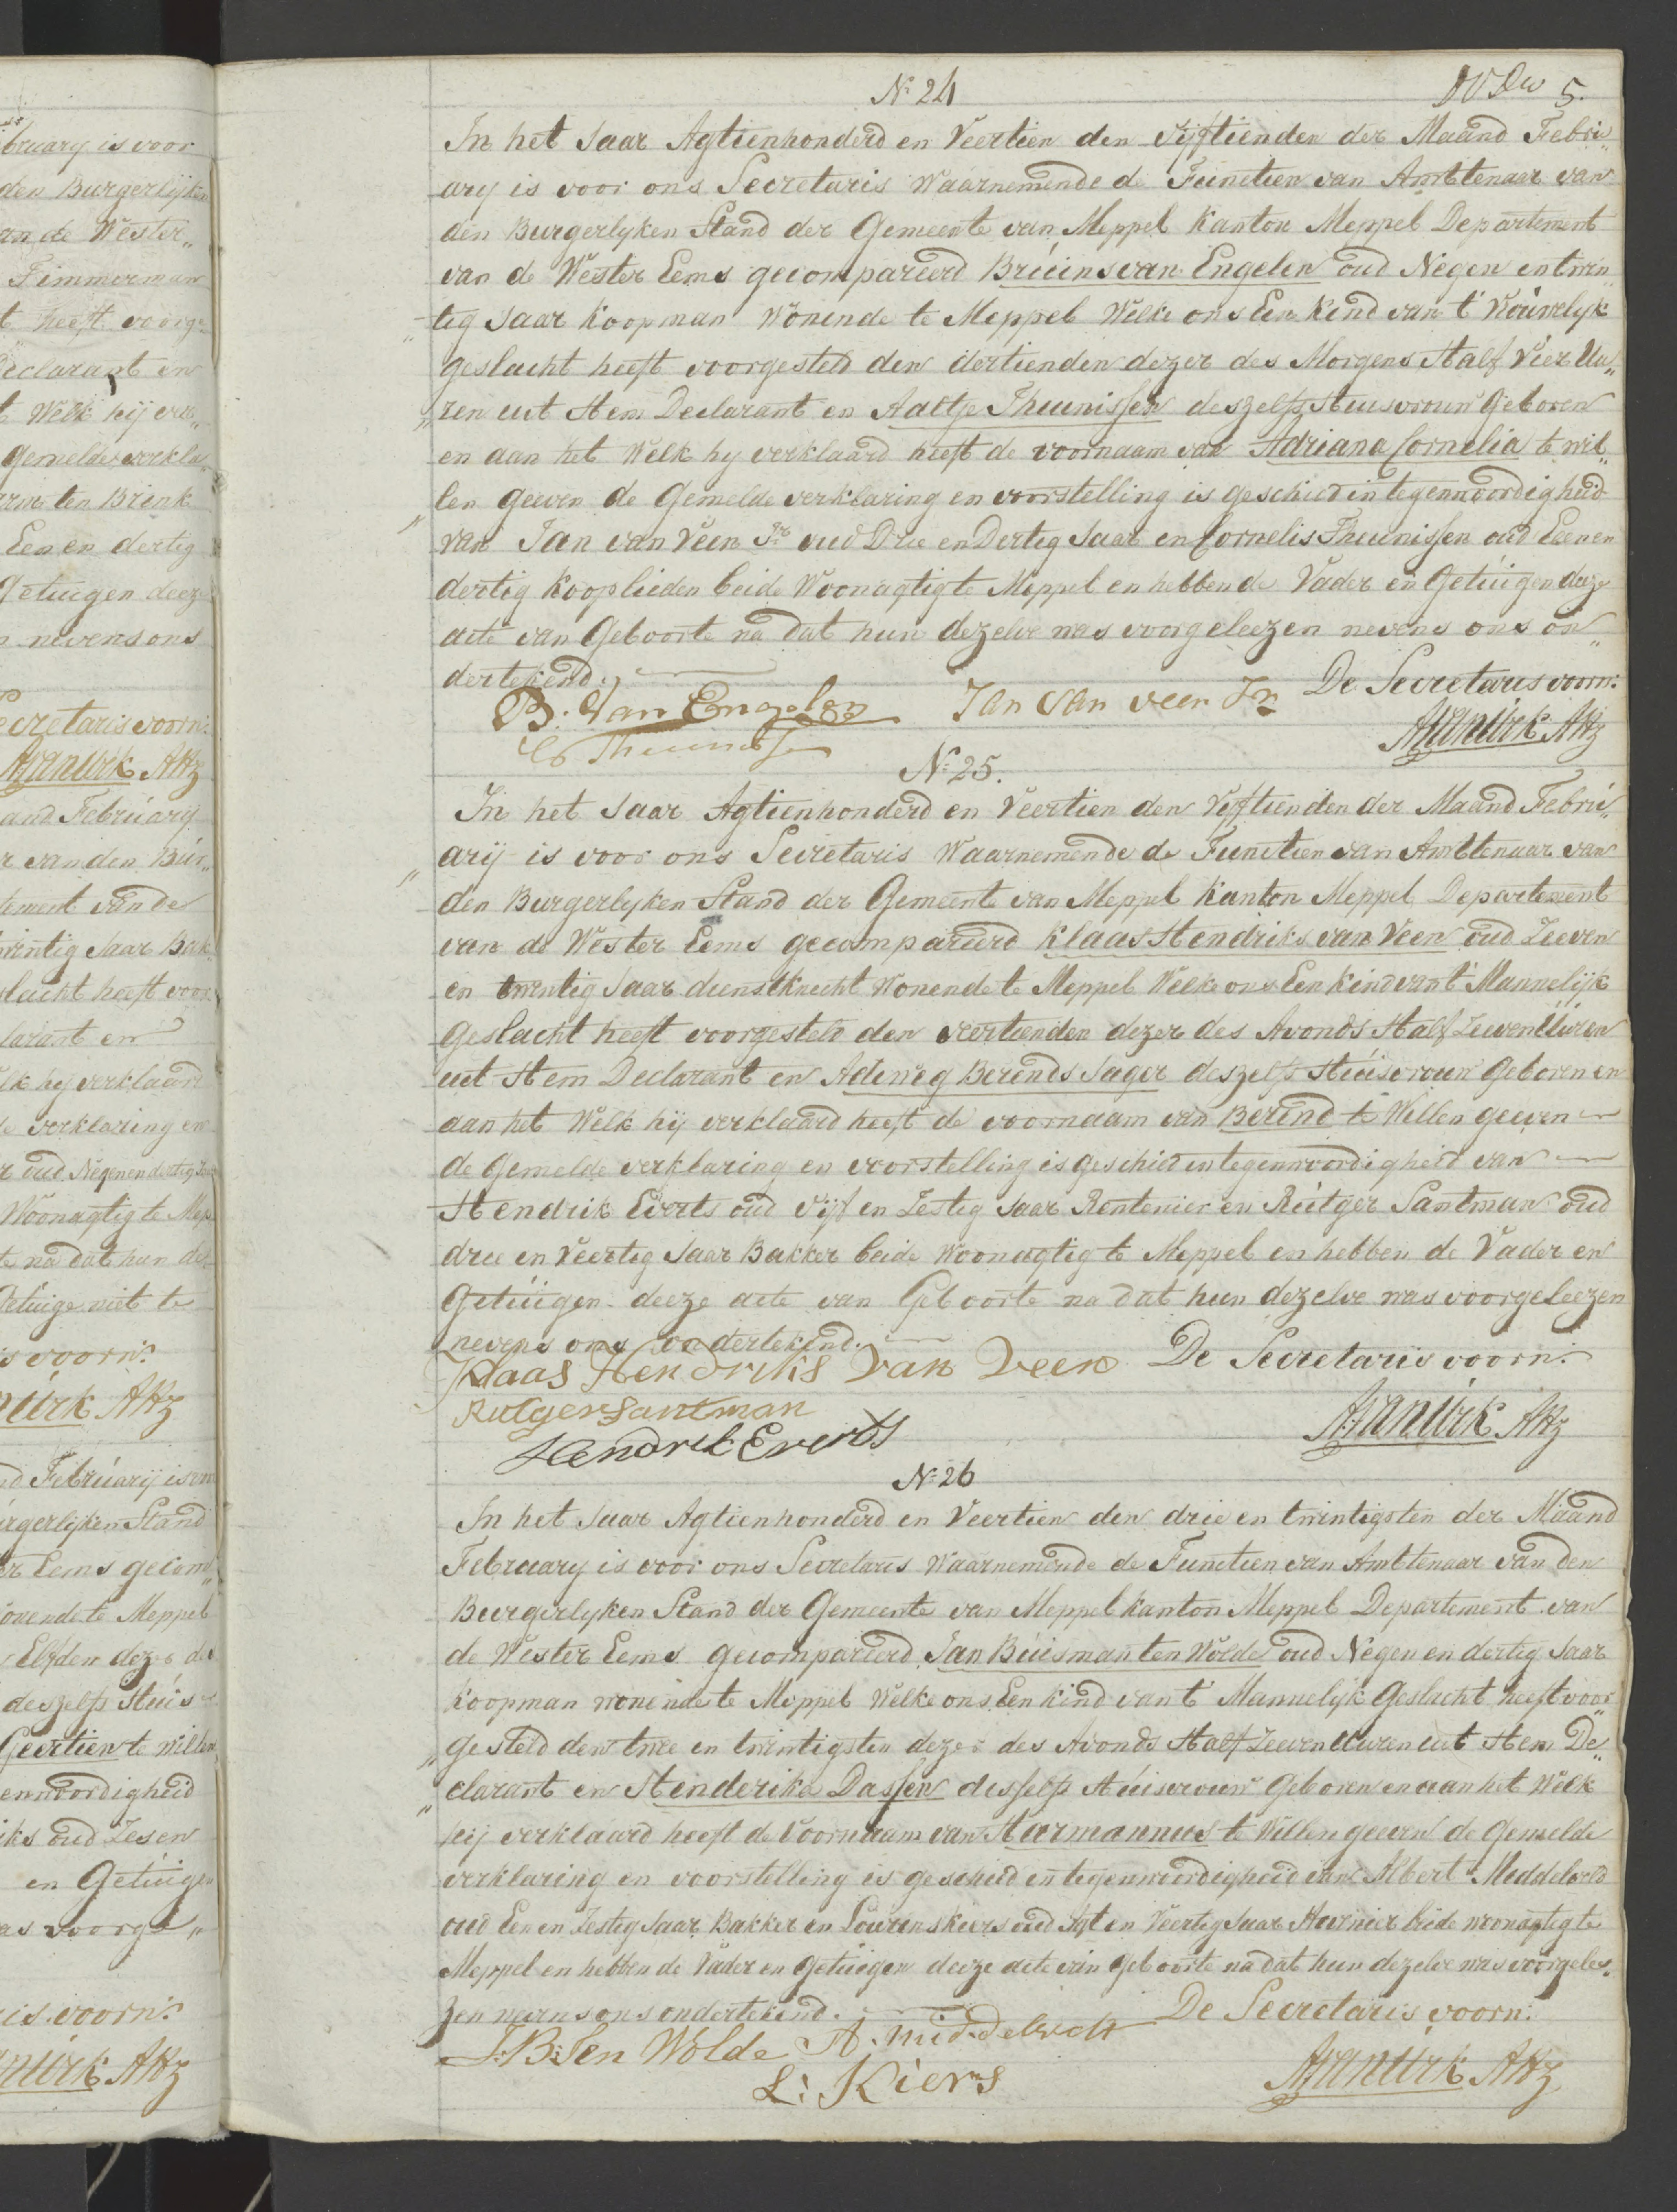 bruary is voor
den Burgerlijken
an de Wester„
Timmerman
t heeft voorge
Declarant en
t Welk hij ver„
Gemelde verkla
ten Brink
Een en dertig
Getuigen deeze
nevens ons
Secretaris voorn:
AvanUrk AHz
and February
r van den Bur„
tement van de
wintig Jaar Bak
slacht heeft voor
larant en
elk hy verklaard
e verklaring en
r oud Negenendertig Jaar
Woonagtig te Mep
te na dat hun de
Getuige niet te
is voorn:
nUrk AHz
nd Februarij is voor
urgerlijken Stand
er Eems gecom„
onende te Meppel
Elfden dezer des
deszelfs Huis
Geertien te willen
enwoordigheid
iks oud Zes en
en Getuigen
as voorge„
is voorn:
nUrk AHz
No 24
5.
In het Jaar Agtienhonderd en Veertien den Vijftienden der Maand Febru„
ary is voor ons Secretaris Waarnemende de Functien van Ambtenaar van
den Burgerlyken Stand der Gemeente van Meppel Kanton Meppel Departement
van de Wester Eems gecompareerd Bruins van Engelen oud Negen en twin„
„tig Jaar Koopman Wonende te Meppel Welke ons Een Kind van t' Vrouwelyk
geslacht heeft voorgesteld den dertienden dezer des Morgens Half Vier Uu„
„ren uit Hem Declarant en Aaltje Theunissen deszelfs Huisvrouw Geboren
en aan het Welk hy verklaard heeft de voornaam van Adriana Cornelia te wil„
„len geeven de Gemelde verklaring en voorstelling is geschied in tegenwoordigheid
van Jan van Veen Jr oud Drie en Dertig Jaar en Cornelis Theunissen oud Een en
dertig Kooplieden beide Woonagtig te Meppel en hebben de Vader en Getuigen deze
acte van Geboorte na dat hun dezelve was voorgeleezen nevens ons on„
dertekend.
De Secretaris voorn:
B. Van Engelen Jan van veen Jr
C Theunissen
AvanUrk AHz
No 25.
In het Jaar Agtienhonderd en Veertien den Vyftienden der Maand Febru„
„arij is voor ons Secretaris Waarnemende de Functien van Ambtenaar van
den Burgerlyken Stand der Gemeente van Meppel Kanton Meppel Departement
van de Wester Eems gecompareerd Klaas Hendriks van Veen oud Zeeven
en twintig Jaar dienstknecht Wonende te Meppel Welke ons Een Kind van t' Mannelijk
Geslacht heeft voorgesteld den veertienden dezer des Avonds Half Zeeven Uuren
uit Hem Declarant en Adeweg Berends Jager deszelfs Huisvrouw Geboren en
aan het Welk hij verklaard heeft de voornaam van Berend te Willen geeven
de Gemelde verklaring en voorstelling is geschied in tegenwoordigheid van
Hendrik Everts oud Vijf en Zestig Jaar Rentenier en Rutger Santman oud
drie en Veertig Jaar Bakker beide Woonagtig te Meppel en hebben de Vader en
Getuigen deeze acte van Geboorte na dat hun dezelve was voorgeleezen
nevens ons ondertekend.
Klaas Hendriks van Veen De Secretaris voorn:
Rutger Santman
Hendrik Everts
AvanUrk AHz
No 26
In het Jaar Agtienhonderd en Veertien den drie en twintigsten der Maand
February is voor ons Secretaris Waarnemende de Functien van Ambtenaar van den
Burgerlyken Stand der Gemeente van Meppel kanton Meppel Departement van
de Wester Eems gecompareerd Jan Buisman ten Wolde oud Negen en dertig Jaar
Koopman wonende te Meppel Welke ons Een kind van t' Mannelijk Geslacht heeft voor„
„gesteld den twee en twintigsten dezer des Avonds Half Zeeven Uuren uit Hem De„
„clarant en Henderika Dassen desselfs Huisvrouw Geboren en aan het Welk
hij verklaard heeft de Voornaam van Harmannus te Willen geeven de Gemelde
verklaring en voorstelling is geschied in tegenwoordigheid van Albert Middelveld
oud Een en Zestig Jaar Bakker en Lourens Kiers oud Agt en Veertig Jaar beide woonagtig te
Meppel en hebben de Vader en Getuigen deeze acte van Geboorte na dat hun dezelve was voorgelee„
zen nevens ons ondertekend.
De Secretaris voorn:
J:B:Ten Wolde A. middelveld
L: Kiers
AvanUrk AHz